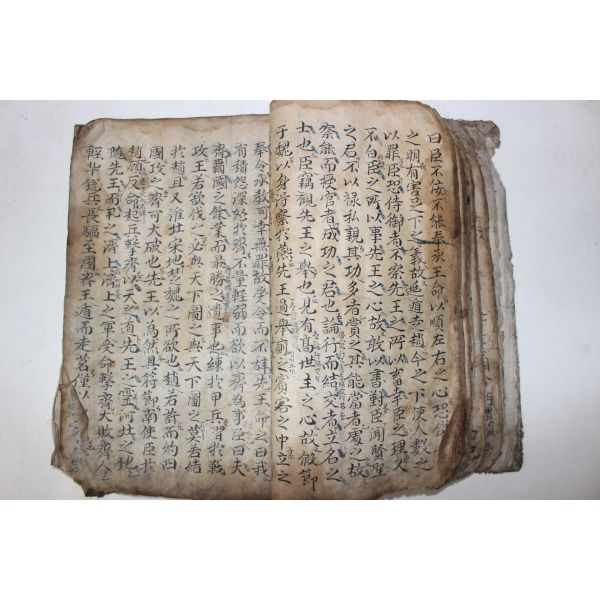 曰臣不佞不能奉承王命以順左右之心恐傷
之明有害足下之義故遁逃走趙今足下使人數之
以罪臣恐侍御者不察先王之所以畜幸臣之理又
不白臣之所以事先王之心故敢以書對臣聞賢聖
之君不以祿私親其功多者賞之其能當者處之故
察能而授官者成功之君也論行而結交者立名之
士也臣竊觀先王之舉也見有高世主之心故假節
于魏以身得察於燕先王過舉廁之賓客之中立之
奉令承教可幸無罪故受令而不辭先王命之曰我
有積怨深怒於齊不量輕弱而欲以齊為事臣曰夫
齊霸國之餘業而最勝之遺事也練於甲兵習於戰
攻王若欲伐之必與天下圖之與天下圖之莫若結
於趙且又淮北宋地楚魏之所欲也趙若許而約四
國攻之齊可大破也先王以為然具符節南使臣於
趙顧反命起兵擊齊以天之道先王之靈河北之地
隨先王而軍之濟上濟上之軍受命擊齊大敗齊人
輕卒銳兵長驅至國齊王遁而走莒僅以